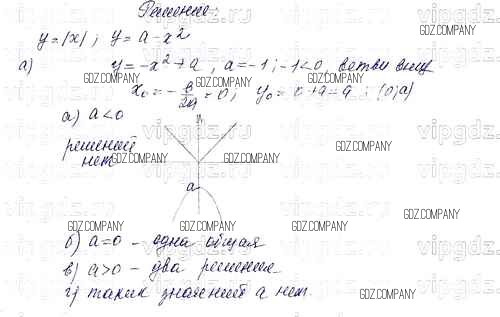 Решение:
y=|x|; y=a-x²
a) y=-x²+a, a=-1; -1<0, ветви вниз
x₀=-в/2a=0; y₀=0+a=a; (0;a)
а) a<0
решений
нет
a
б) a=0 - одна общая
в) a>0 - два решения
г) таких значений а нет.
GDZ.COMPANY
vipgdz.com